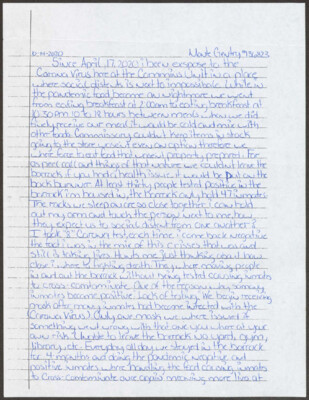 6-14-2020
Since April 17, 2020 i been expose to the
Corona Virus here at the Cummins Unit in a place
where social distants is next to impossible. While in
the pandemic food became an nightmare we went
from eating breakfast at 2:00am to eating breakfast at
10:30 PM 10 to 12 hours between meals. When we did
finely receive our meal it would be cold and mix with
other foods. Commissary couldn't keep items in stock
going to the store wasn't even an option therefore we
where force to eat food that wasn't properly prepared. For
as pest call and things of that nature we couldn't leave the
barrack if you had a health issue it would be put on the
back burner. At least thirty people tested positive in the
barrack i'm housed in, the barrack only hold 47 inmates
The racks we sleep on are so close together i can take
out my arm and touch the person next to me, how
they expect us to social distant from one another?
I took Corona test each time i came back negative
the fact i was in the mix of this crisis that was and
still is taking lives hurts me just thinking about how
close i where to fighting death. They where moving people
in and out the barrack without being tested causing inmates
to cross-contaminate. One of the reason why so many
inmates become positive. Lack of testing. We begin receiving
mask after many inmates had become infected with the
Corona Virus. Only one mask we where issued if
something went wrong with that one you where at your
own risk. Unable to leave the barrack no yard, gym,
library, etc. Everyday all day we stayed in the barrack
for 4 months and doing the pandemic negative and
positive inmates where housed the test causing inmates
to cross-contaminate over again removing more lives at